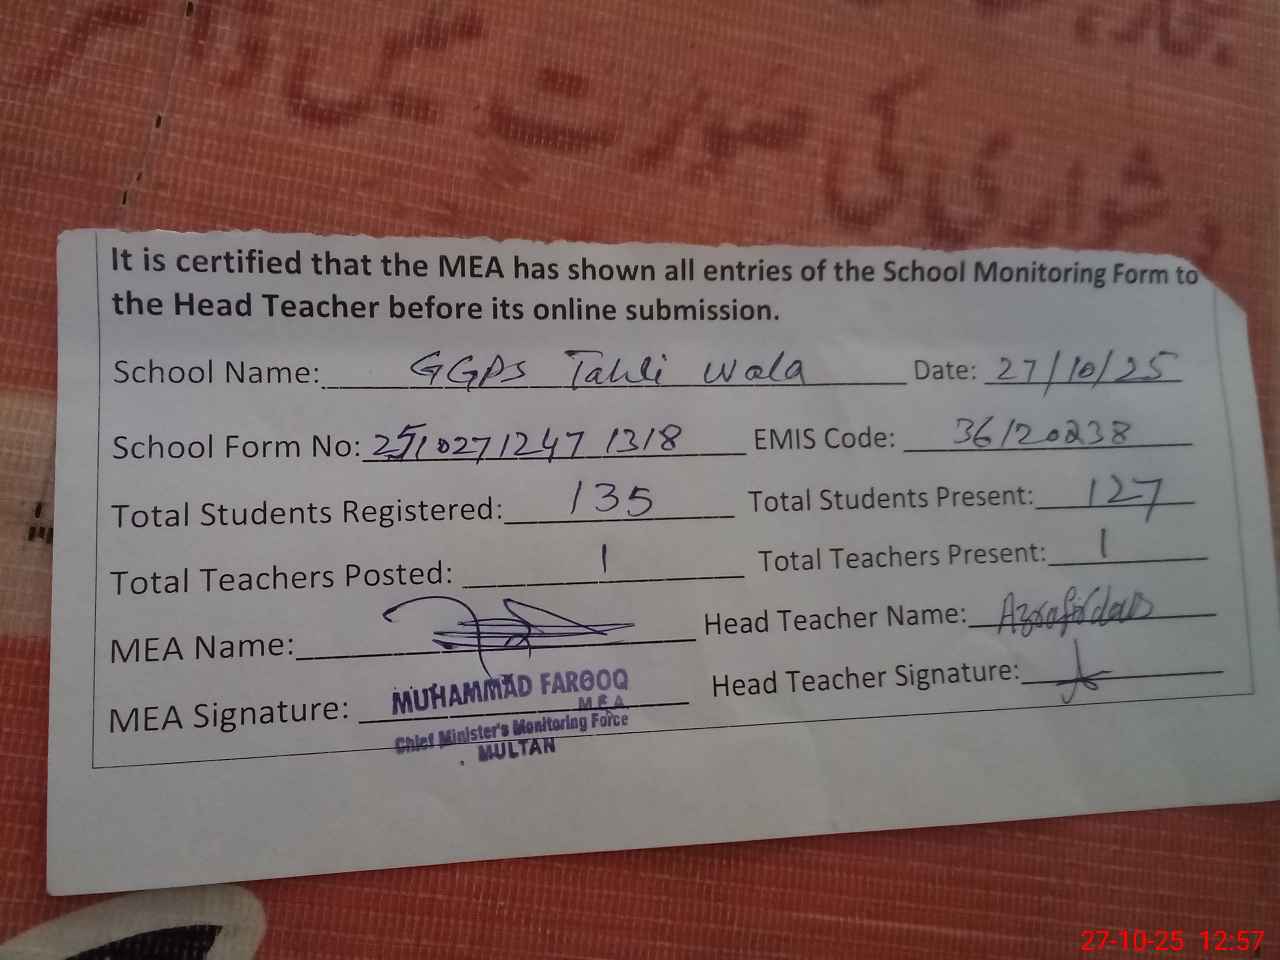 It is certified that the MEA has shown all entries of the School Monitoring Form to
the Head Teacher before its online submission.
School Name: GGPS Tahli wala Date: 27/10/25
School Form No: 2510271247 1318 EMIS Code: 36120238
Total Students Registered: 135 Total Students Present: 127
Total Teachers Posted: 1 Total Teachers Present: 1
MEA Name: Head Teacher Name:
MEA Signature: Head Teacher Signature:
MUHAMMAD FAROOQ
MEA
Chief Minister's Monitoring Force
MULTAN
27-10-25 12:57